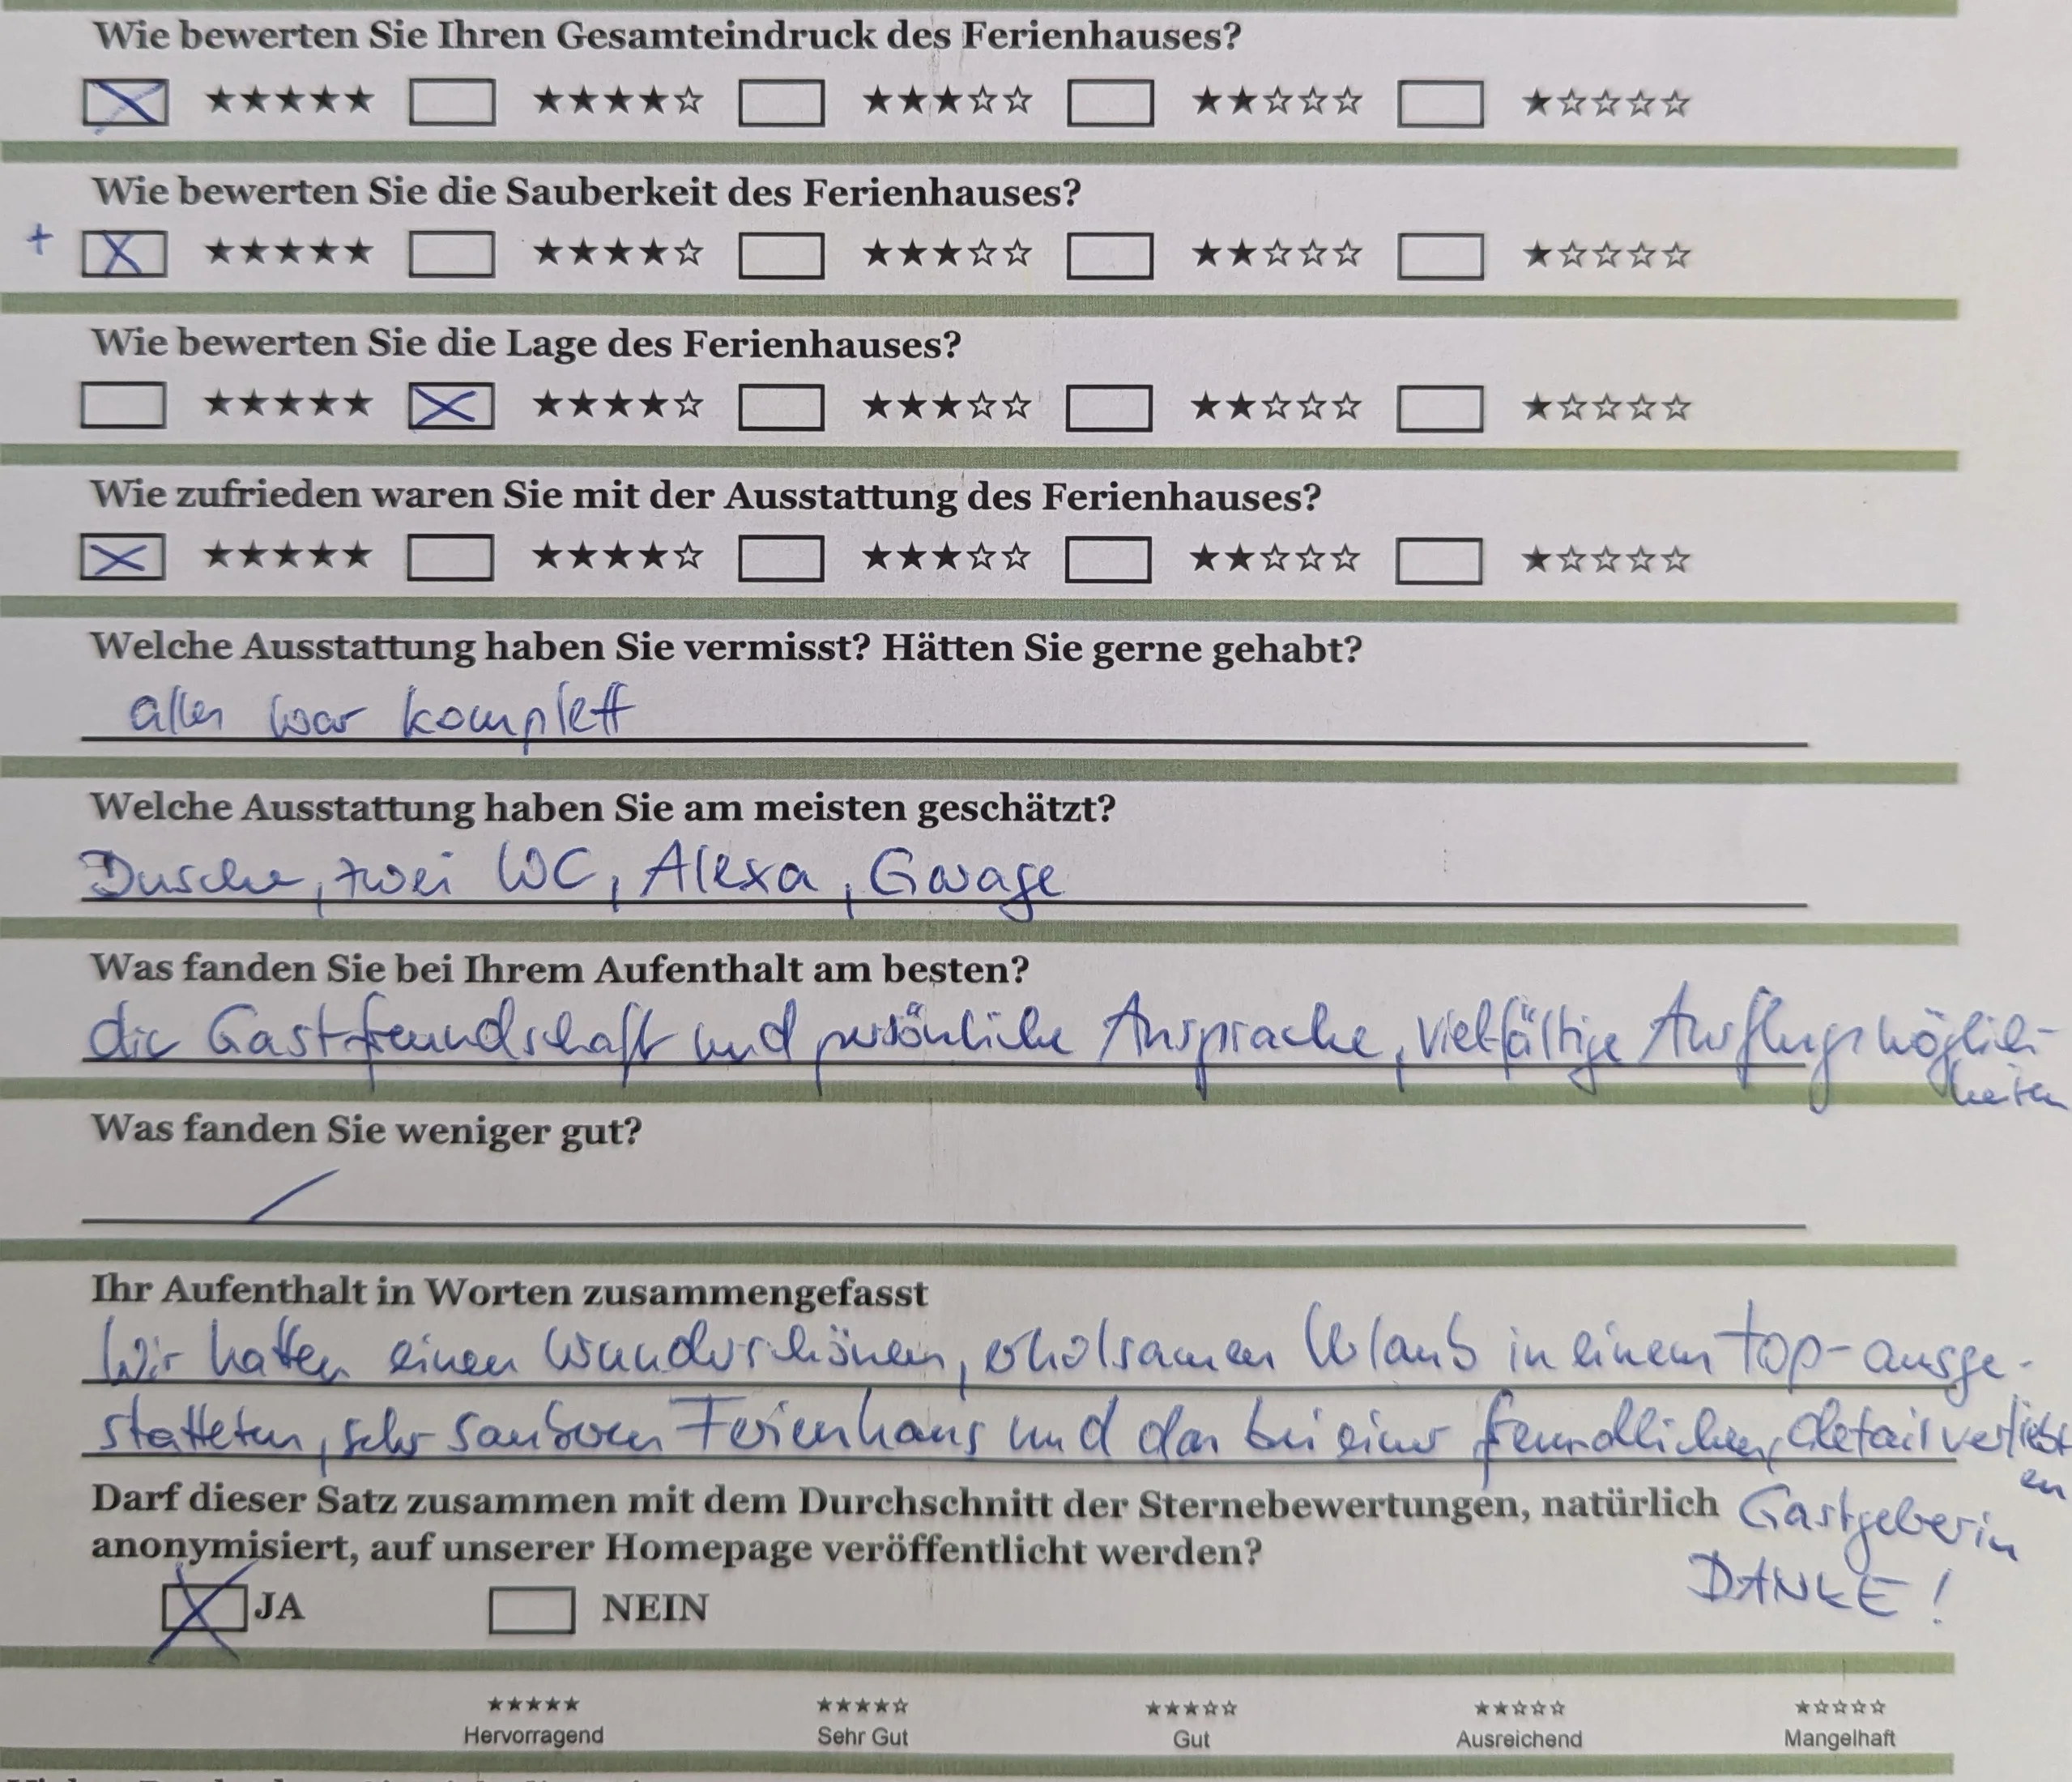 Wie bewerten Sie Ihren Gesamteindruck des Ferienhauses?
☒ ★★★★★ ☐ ★★★★☆ ☐ ★★★☆☆ ☐ ★★☆☆☆ ☐ ★☆☆☆☆
Wie bewerten Sie die Sauberkeit des Ferienhauses?
+ ☒ ★★★★★ ☐ ★★★★☆ ☐ ★★★☆☆ ☐ ★★☆☆☆ ☐ ★☆☆☆☆
Wie bewerten Sie die Lage des Ferienhauses?
☐ ★★★★★ ☒ ★★★★☆ ☐ ★★★☆☆ ☐ ★★☆☆☆ ☐ ★☆☆☆☆
Wie zufrieden waren Sie mit der Ausstattung des Ferienhauses?
☒ ★★★★★ ☐ ★★★★☆ ☐ ★★★☆☆ ☐ ★★☆☆☆ ☐ ★☆☆☆☆
Welche Ausstattung haben Sie vermisst? Hätten Sie gerne gehabt?
alles war komplett
Welche Ausstattung haben Sie am meisten geschätzt?
Dusche, zwei WC, Alexa, Garage
Was fanden Sie bei Ihrem Aufenthalt am besten?
die Gastfreundschaft und persönliche Ansprache, vielfältige Ausflugsmöglich-
keiten
Was fanden Sie weniger gut?
/
Ihr Aufenthalt in Worten zusammengefasst
Wir hatten einen wunderschönen, erholsamen Urlaub in einem top-ausge-
statteten, sehr sauberen Ferienhaus und das bei einer freundlichen, detailverliebt
en
Gastgeberin
DANKE!
Darf dieser Satz zusammen mit dem Durchschnitt der Sternebewertungen, natürlich
anonymisiert, auf unserer Homepage veröffentlicht werden?
☒ JA ☐ NEIN
★★★★★ ★★★★☆ ★★★☆☆ ★★☆☆☆ ★☆☆☆☆
Hervorragend Sehr Gut Gut Ausreichend Mangelhaft